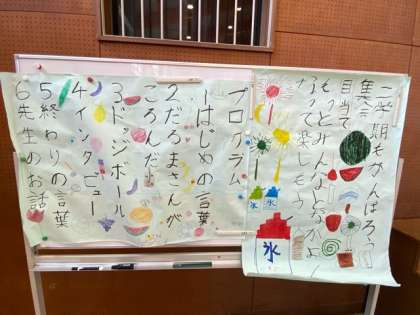 二学期もがんばろう
集会
目当て
もっとみんなとなかよく
なって楽しもう
氷
プログラム
1はじめの言葉
2だるまさんが
ころんだ
3ドッジボール
4インタビュー
5終わりの言葉
6先生のお話